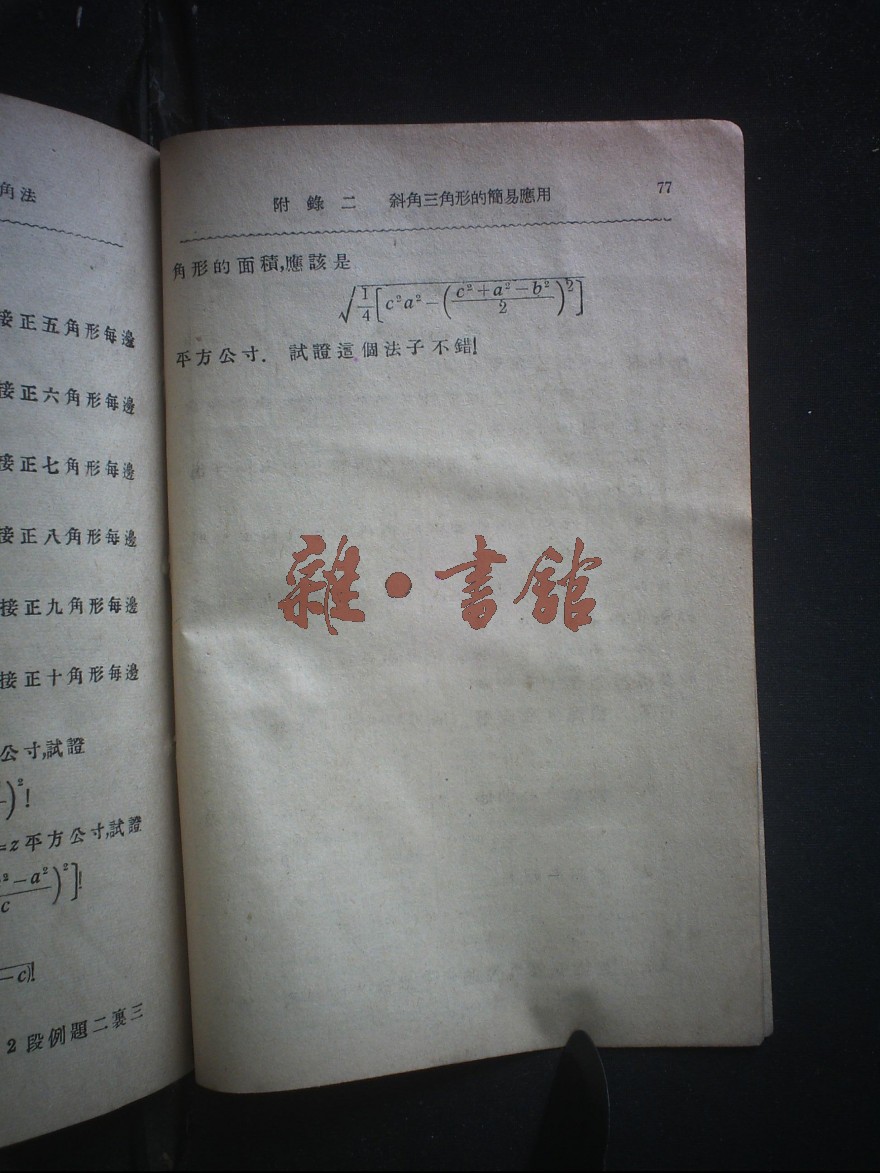 角法
接正五角形每邊
接正六角形每邊
接正七角形每邊
接正八角形每邊
接正九角形每邊
接正十角形每邊
公寸,試證
)²!
=z平方公寸,試證
² − a²
c
)²]!
−c)!
2 段例題二裏三
附錄二 斜角三角形的簡易應用 77
角形的面積,應該是
√(1/4[c²a² − ((c² + a² − b²)/2)²])
平方公寸. 試證這個法子不錯!
雜·書館